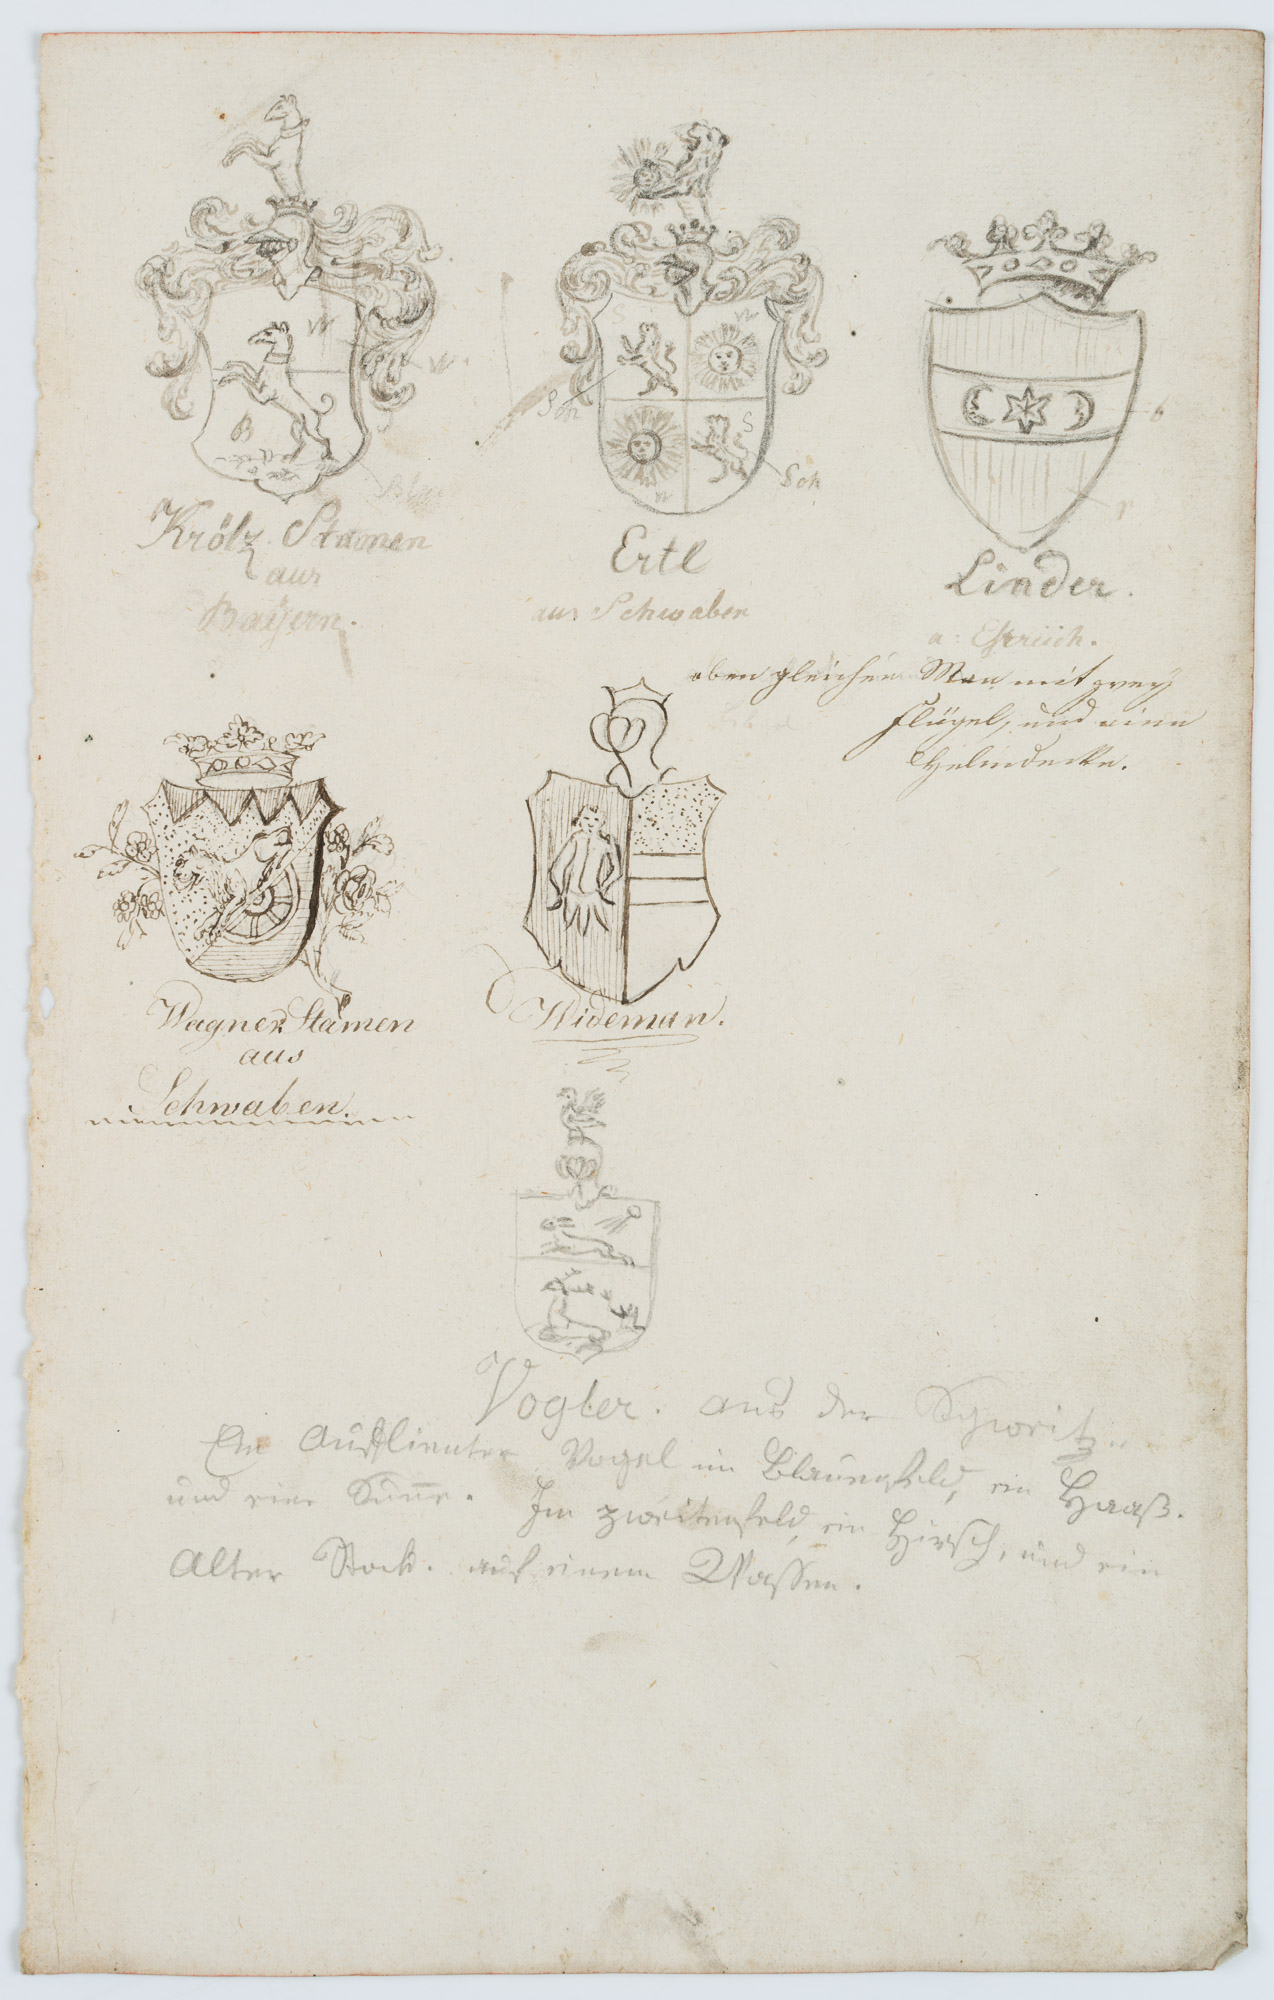 W
W
B
Blau
Krölz Stamen
aus
Baÿern.
S
W
Sch
S
W
Sch
Ertl
aus Schwaben
b
r
Linder.
a:
oben gleichen Man mit zweÿ
flügel, und eine
Helmdecke.
Wagner Stamen
aus
Schwaben.
Wideman.
Vogler. aus der Schweitz.
Ein Vogel im Blauenfeld, ein Haaß.
und eine Sunne. Im zweitenfeld, ein Hirsch, und ein
Alter Stock. auf einem Wassen.